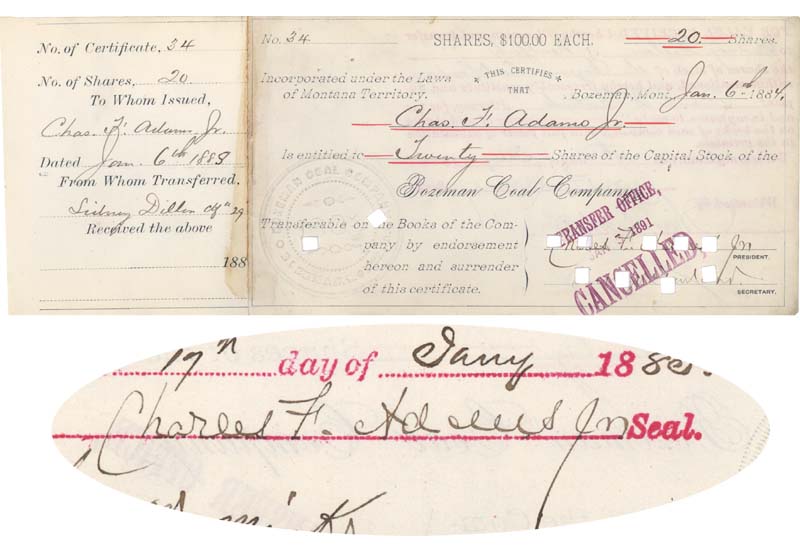 No. of Certificate, 34
No. of Shares, 20
To Whom Issued,
Chas. F. Adams Jr.
Dated Jan. 6th 1888
From Whom Transferred,
Sidney Dillon
Received the above
188
No. 34. SHARES, $100.00 EACH. 20 Shares.
Incorporated under the Laws
of Montana Territory.
THIS CERTIFIES
THAT
Bozeman, Mont. Jan. 6th 1884.
Chas. F. Adams Jr.
Is entitled to Twenty Shares of the Capital Stock of the
Bozeman Coal Company,
Transferable on the Books of the Com-
pany by endorsement
hereon and surrender
of this certificate.
BOZEMAN COAL COMPANY
TRANSFER OFFICE,
1891
CANCELLED,
Jr
PRESIDENT.
SECRETARY.
17th day of Jany 188
Charles F. Adams Jr Seal.